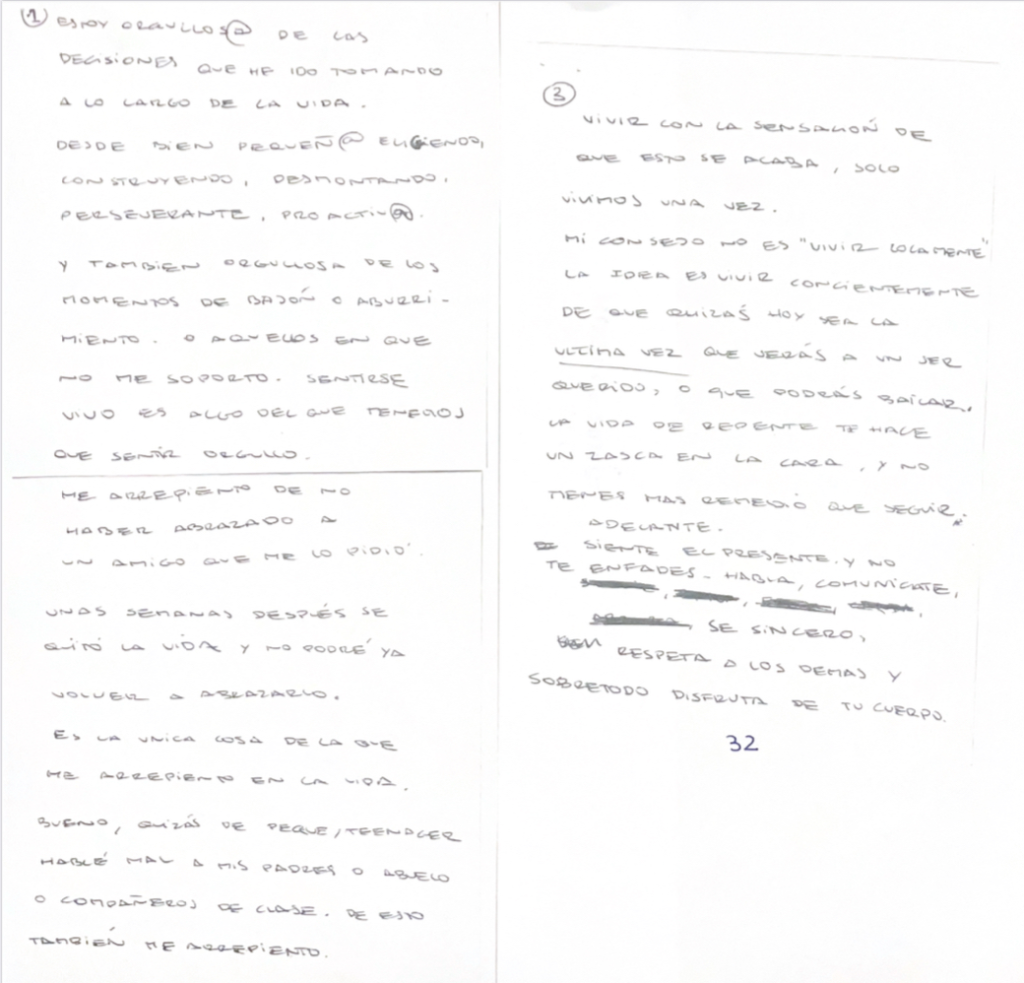 1 ESTOY ORGULLOS@ DE LAS
DECISIONES QUE HE IDO TOMANDO
A LO LARGO DE LA VIDA.
DESDE BIEN PEQUEÑ@ ELIGIENDO,
CONSTRUYENDO, DESMONTANDO,
PERSEVERANTE, PROACTIV@.
Y TAMBIEN ORGULLOSA DE LOS
MOMENTOS DE BAJÓN O ABURRI-
MIENTO. O AQUELLOS EN QUE
NO ME SOPORTO. SENTIRSE
VIVO ES ALGO DEL QUE TENEMOS
QUE SENTIR ORGULLO.
ME ARREPIENTO DE NO
HABER ABRAZADO A
UN AMIGO QUE ME LO PIDIÓ.
UNAS SEMANAS DESPUÉS SE
QUITÓ LA VIDA Y NO PODRÉ YA
VOLVER A ABRAZARLO.
ES LA UNICA COSA DE LA QUE
ME ARREPIENTO EN LA VIDA.
BUENO, QUIZÁS DE PEQUE/TEENAGER
HABLÉ MAL A MIS PADRES O ABUELO
O COMPAÑEROS DE CLASE. DE ESTO
TAMBIÉN ME ARREPIENTO.
3
VIVIR CON LA SENSACIÓN DE
QUE ESTO SE ACABA, SOLO
VIVIMOS UNA VEZ.
MI CONSEJO NO ES "VIVIR LOCAMENTE"
LA IDEA ES VIVIR CONCIENTEMENTE
DE QUE QUIZÁS HOY SEA LA
ULTIMA VEZ QUE VERÁS A UN SER
QUERIDO, O QUE PODRÁS BAILAR.
LA VIDA DE REPENTE TE HACE
UN ZASCA EN LA CARA, Y NO
TIENES MAS REMEDIO QUE SEGUIR
ADELANTE.
SIENTE EL PRESENTE. Y NO
TE ENFADES - HABLA, COMUNÍCATE,
SE SINCERO,
RESPETA A LOS DEMAS Y
SOBRETODO DISFRUTA DE TU CUERPO.
32